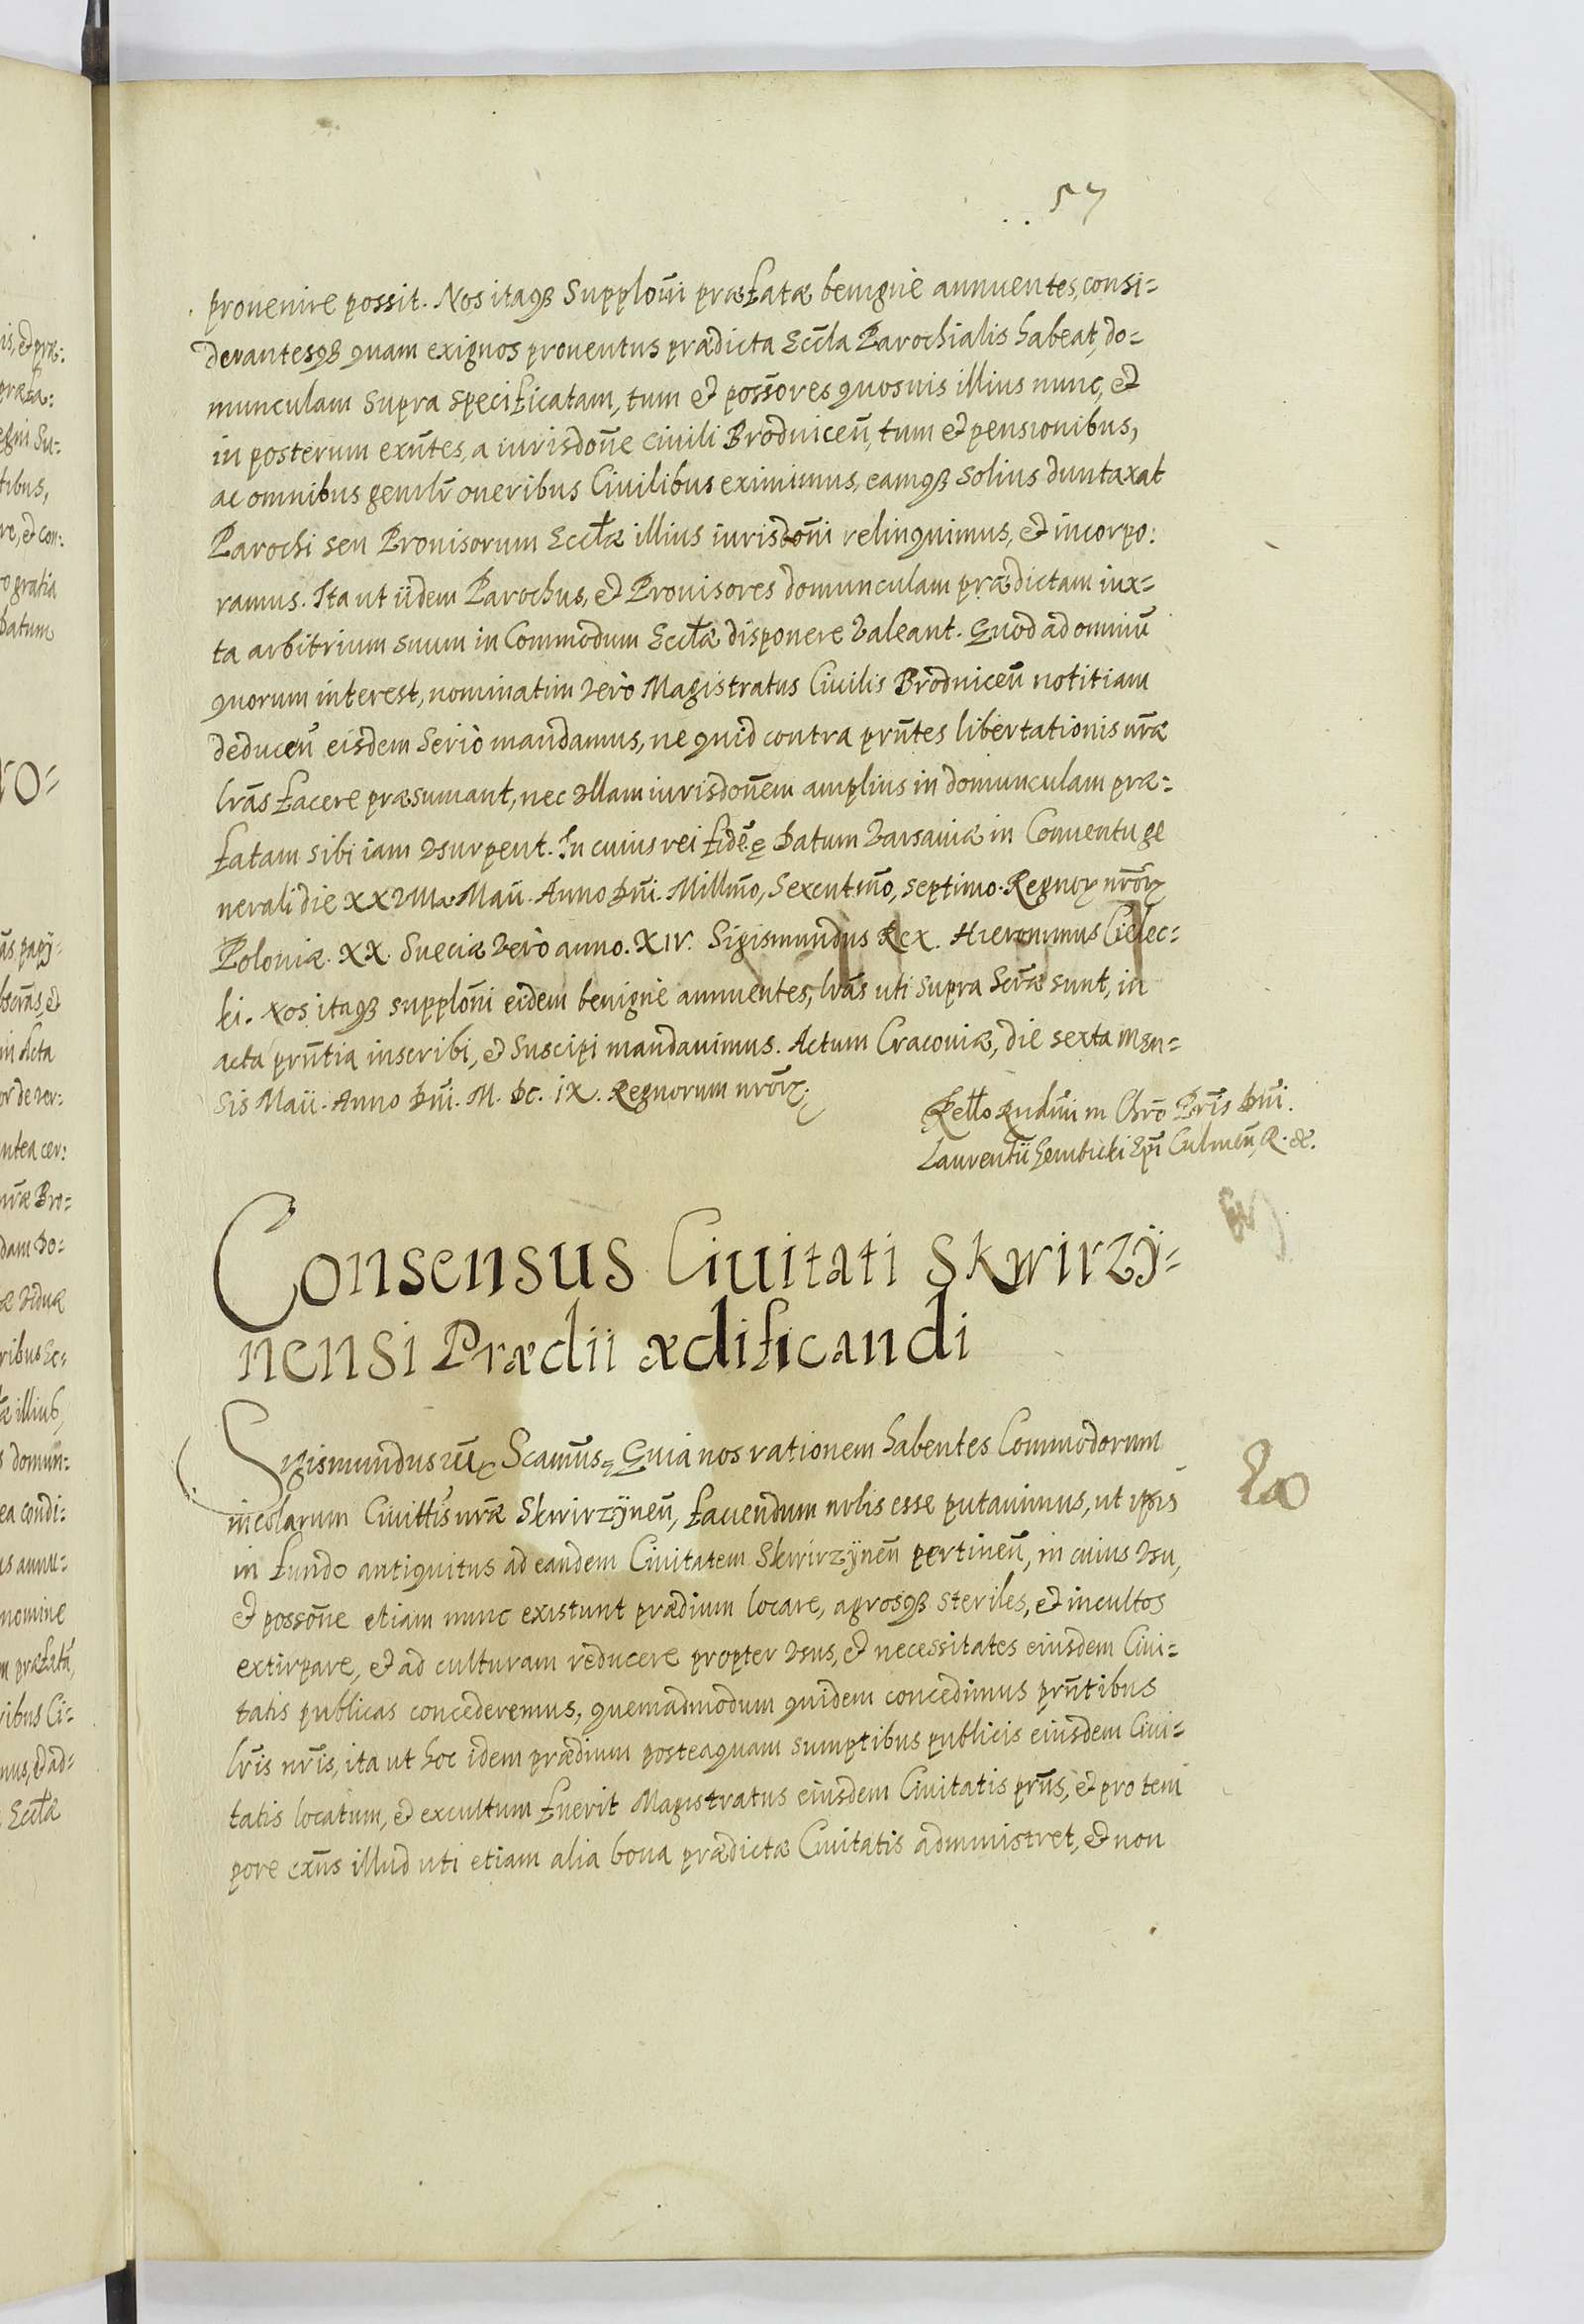 57
provenire possit. Nos itaqȝ Supplōni præfatæ benignè annuentes, consi=
derantesqȝ quam exiguos proventus prædicta Eccła Parochialis habeat, do=
munculam supra specificatam, tum et possōres quosuis illius nunc, et
in posterum exn̄tes, a iurisdōne civili Brodniceñ, tum et pensionibus,
ac omnibus genūlr oneribus Civilibus eximimus, eamqȝ solius duntaxat
Parochi seu Provisorum Eccłæ illius iurisdōni relinquimus, et incorpo:
ramus. Ita ut iidem Parochus, et Provisores domunculam prædictam iux=
ta arbitrium suum in Commodum Eccłæ disponere valeant. Quod ad omniū
quorum interest, nominatim verò Magistratus Civilis Brodniceñ notitiam
deduceñ eisdem seriò mandamus, ne quid contra prn̄tes libertationis nr̄æ
lrās facere præsumant, nec vllam iurisdōnem amplius in domunculam præ=
fatam sibi iam vsurpent. In cuius rei fidē. ę Datum Varsaviæ in Conventu ge
nerali die XXVIIIa Maii. Anno Dn̄i. Millm̄o, Sexcentm̄o, septimo. Regnoꝝ nrōꝝ
Poloniæ. XX. Sueciæ verò anno. XIV. Sigismundus Rex. Hieronimus Cielec=
ki. Nos itaqȝ supplōni eidem benignè annuentes, lrās uti supra Scr̄æ sunt, in
acta prn̄tia inscribi, et suscipi mandavimus. Actum Cracoviæ, die sexta Men=
sis Maii. Anno Dn̄i. M. DC. IX. Regnorum nrōꝝ.
Rełło Rndm̄i in Chrō Pr̄is Dn̄i.
Laurentii Gembicki Ep̄i Culmeñ, R. &.
Consensus Civitati Skwirzÿ=
nensi Prædii ædificandi
Sigismundus III. Scām̄us Quia nos rationem habentes Commodorum
incolarum Civitt̄is nr̄æ Skwirzÿneñ, favendum nobis esse putavimus, ut ip̄is
in fundo antiquitus ad eandem Civitatem Skwirzÿneñ pertineñ, in cuius vsu,
et possōne etiam nunc existunt prædium locare, agrosqȝ steriles, et incultos
extirpare, et ad culturam reducere propter vsus, et necessitates eiusdem Civi=
tatis publicas concederemus, quemadmodum quidem concedimus prn̄tibus
lrīs nrīs, ita ut hoc idem prædium posteaquam sumptibus publicis eiusdem Civi=
tatis locatum, et excultum fuerit Magistratus eiusdem Civitatis prn̄s, et pro tem
pore exn̄s illud uti etiam alia bona prædictæ Civitatis administret, et non